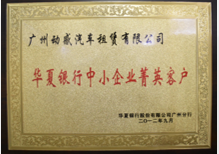 广州动感汽车租赁有限公司
华夏银行中小企业菁英客户
华夏银行股份有限公司广州分行
二〇一二年九月